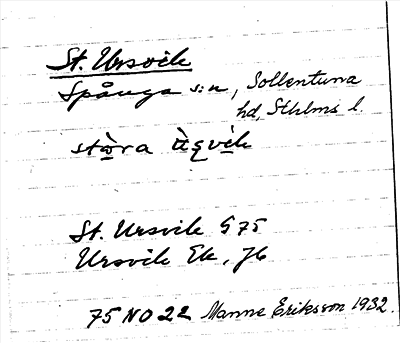 St. Ursvik
Spånga s:n, Sollentuna
hd, Sthlms l.
stòra ùʂvik
St. Ursvik G 75
Ursvik Ek, J6
75 NO 22 Manne Eriksson 1932.